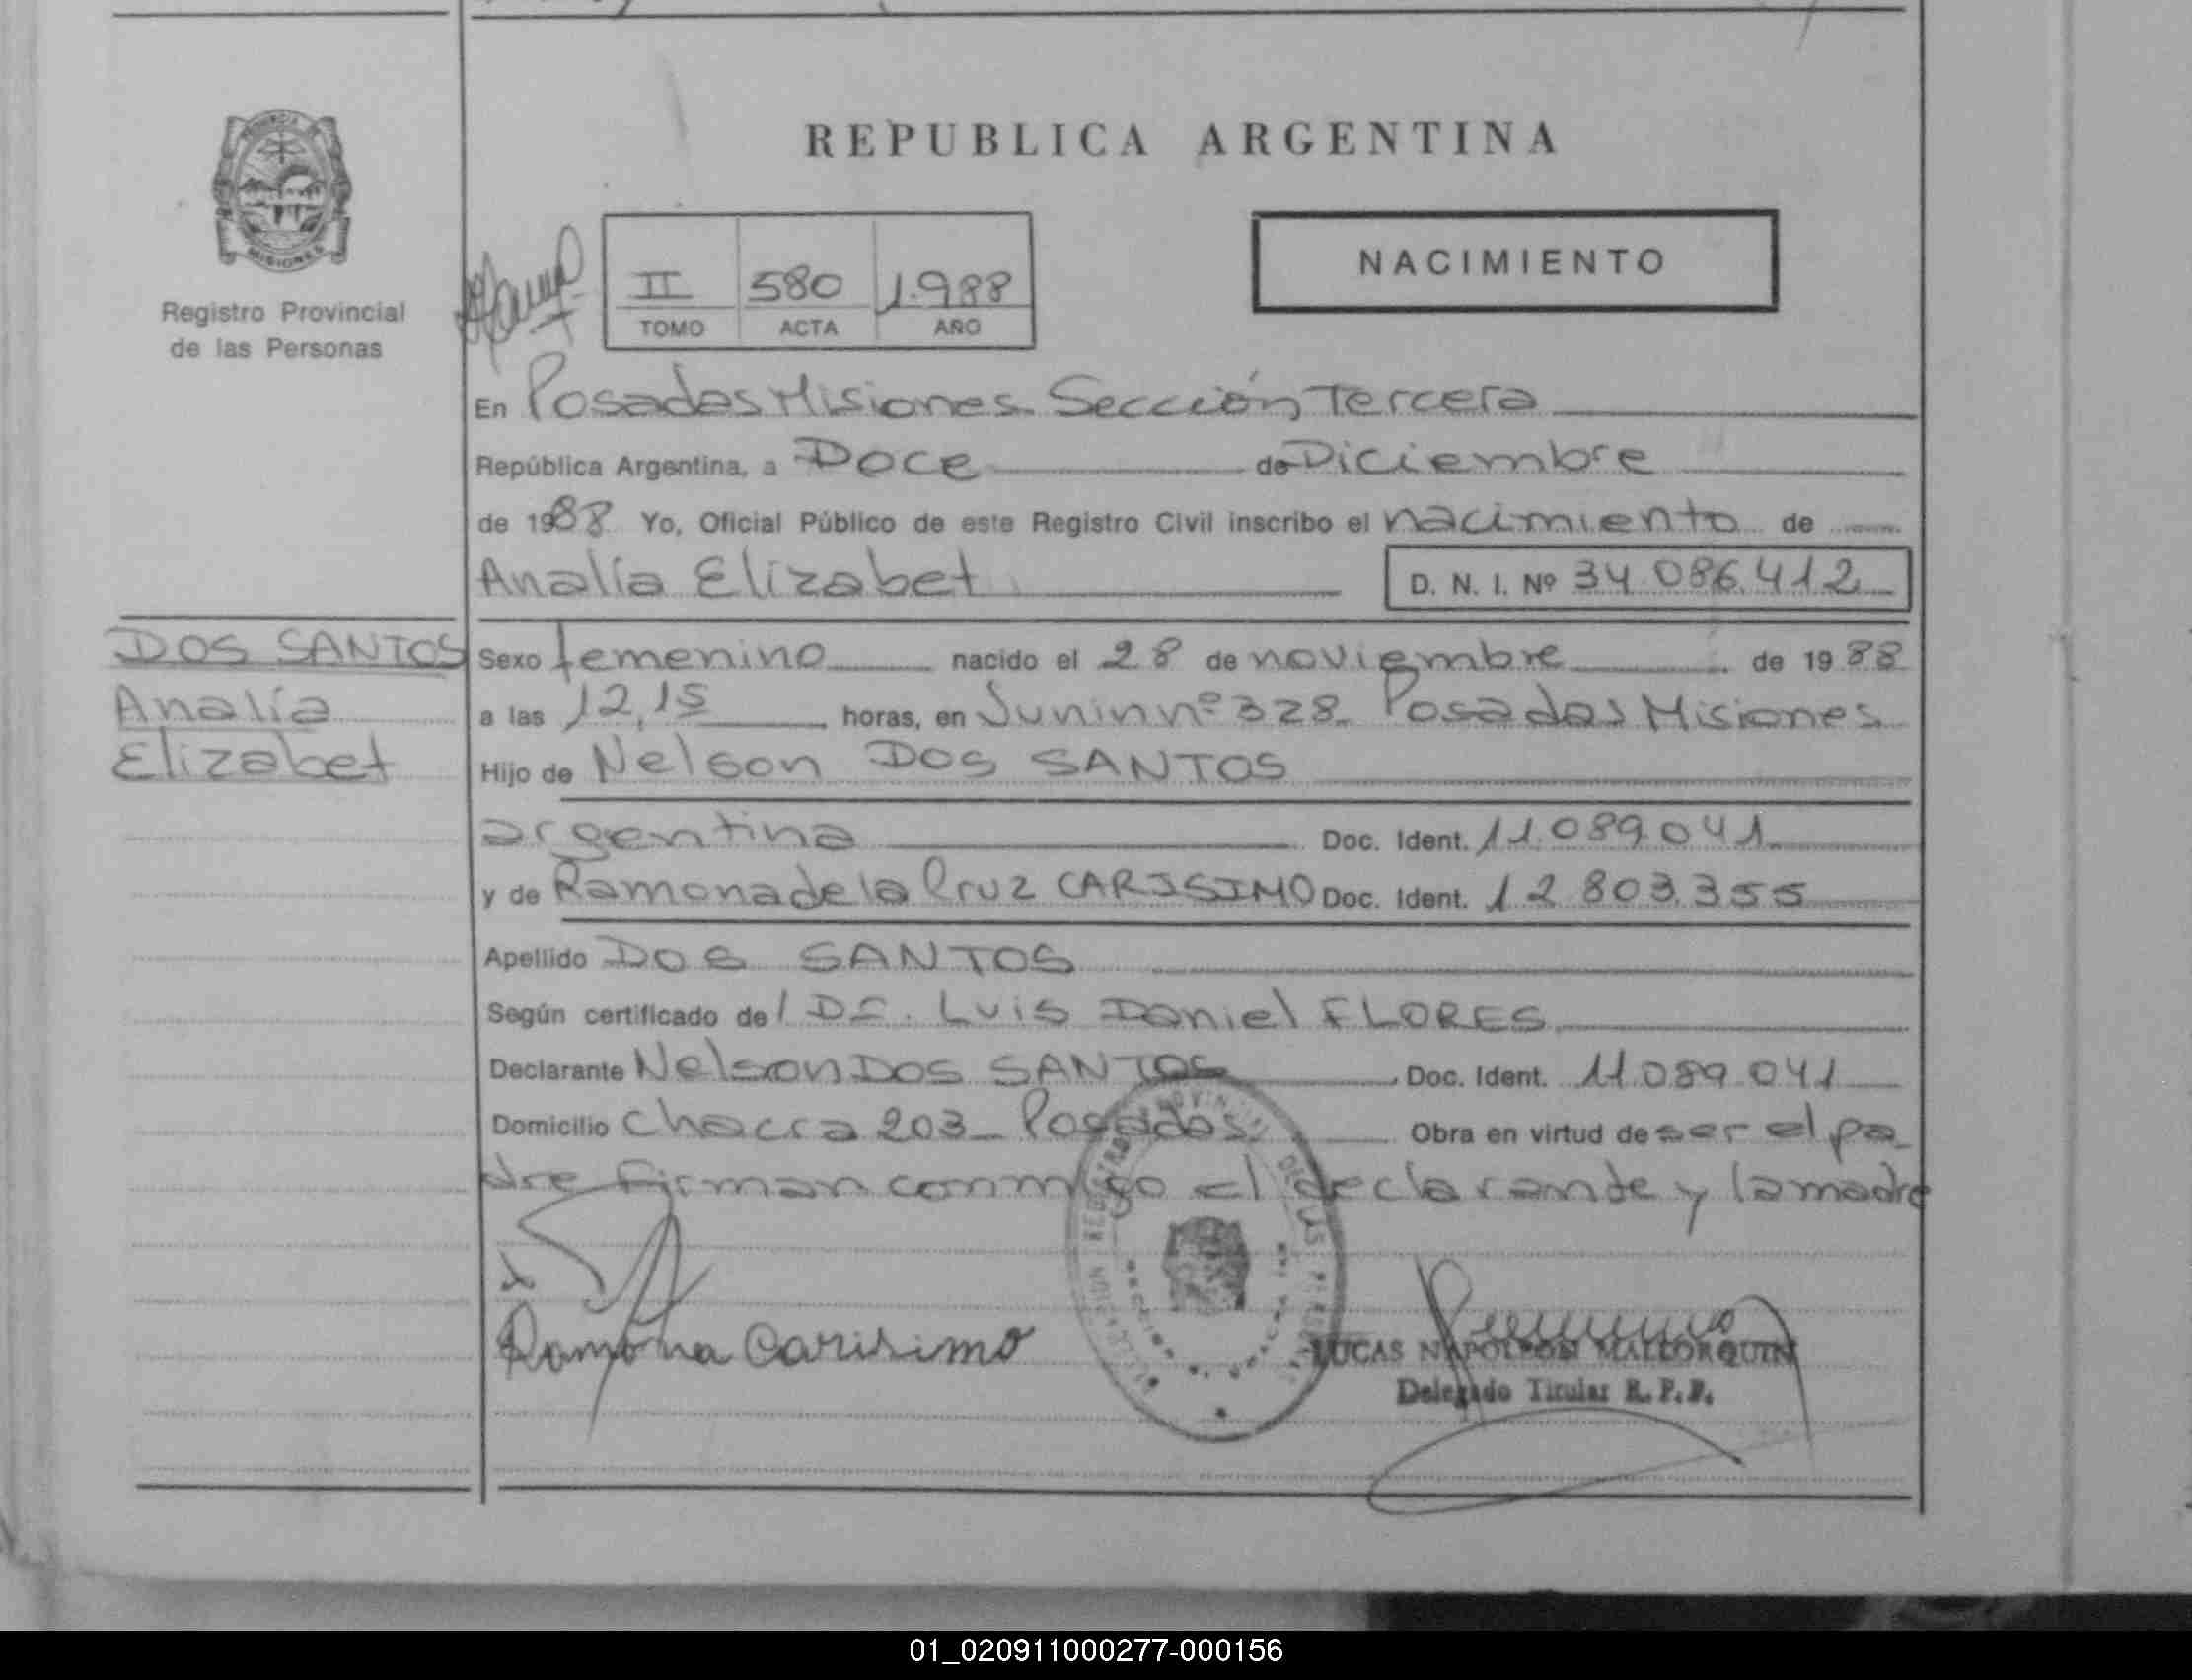 REPUBLICA ARGENTINA
PROVINCIA DE
MISIONES
Registro Provincial
de las Personas
II 580 1.988
TOMO ACTA AÑO
NACIMIENTO
En Posadas Misiones Sección Tercera
República Argentina, a Doce de Diciembre
de 1988 Yo, Oficial Público de este Registro Civil inscribo el nacimiento de
Analía Elizabet D. N. I. Nº 34.086.412
DOS SANTOS
Analía
Elizabet
Sexo femenino nacido el 28 de noviembre de 1988
a las 12,15 horas, en Junin nº 328 Posadas Misiones
Hijo de Nelson DOS SANTOS
argentina Doc. Ident. 11.089.041
y de Ramona de la Cruz CARISIMO Doc. Ident. 12 803.355
Apellido DOS SANTOS
Según certificado del Dr. Luis Daniel FLORES
Declarante Nelson DOS SANTOS Doc. Ident. 11.089.041
Domicilio Chacra 203_ Posadas Obra en virtud de ser el pa_
dre firman conmigo el declarante y la madre
Ramona Carisimo
LUCAS NAPOLEON MALLORQUIN
Delegado Titular R. P. P.
01_020911000277-000156